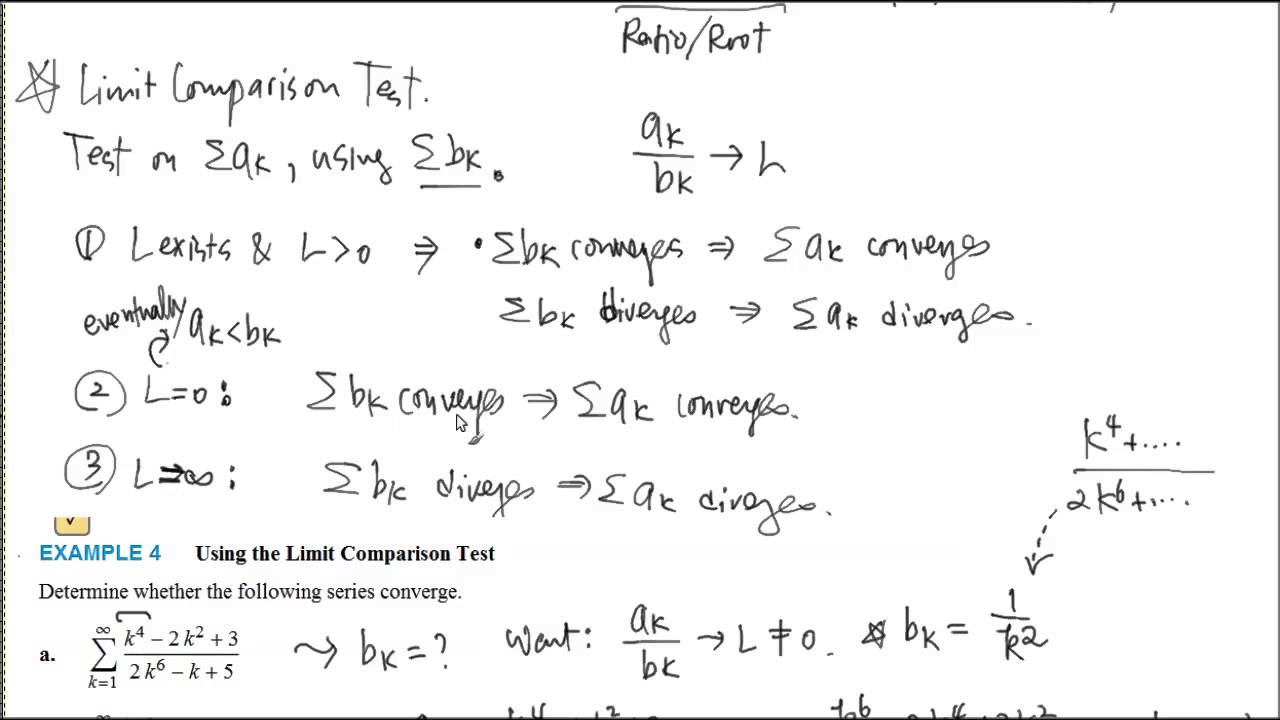 Ratio/Root
☆ Limit Comparison Test.
Test on Σak, using Σbk.
ak/bk → L
① L exists & L>0 ⇒ • Σbk converges ⇒ Σak converges
Σbk diverges ⇒ Σak diverges.
eventually ak<bk
② L=0: Σbk converges ⇒ Σak converges.
③ L=∞: Σbk diverges ⇒ Σak diverges.
k⁴+....
2k⁶+...
EXAMPLE 4 Using the Limit Comparison Test
Determine whether the following series converge.
a. ∞ Σ k=1 (k⁴ − 2k² + 3)/(2k⁶ − k + 5) ⇝ bk=? Want: ak/bk → L ≠ 0. ☆ bk = 1/k²